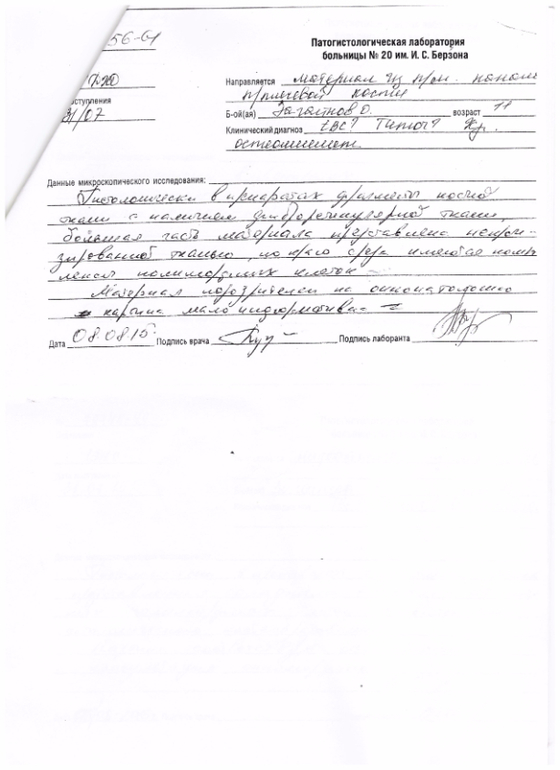 56-61
Патогистологическая лаборатория
больницы № 20 им. И. С. Берзона
Направляется материал из прокс.
оступления
кости
31/07
Б-ой(ая) О. возраст 11
Клинический диагноз Хр.
остеомиелит
Данные микроскопического исследования:
Гистологически в препаратах фрагменты костной
ткани с наличием фиброретикулярной ткани,
большая часть материала представлена некроти-
зированной тканью, по краю среза имеются комп-
лексы полиморфных клеток
Материал подозрителен на онкопатологию
картина мало информативна
Дата 08.08.15 Подпись врача Подпись лаборанта